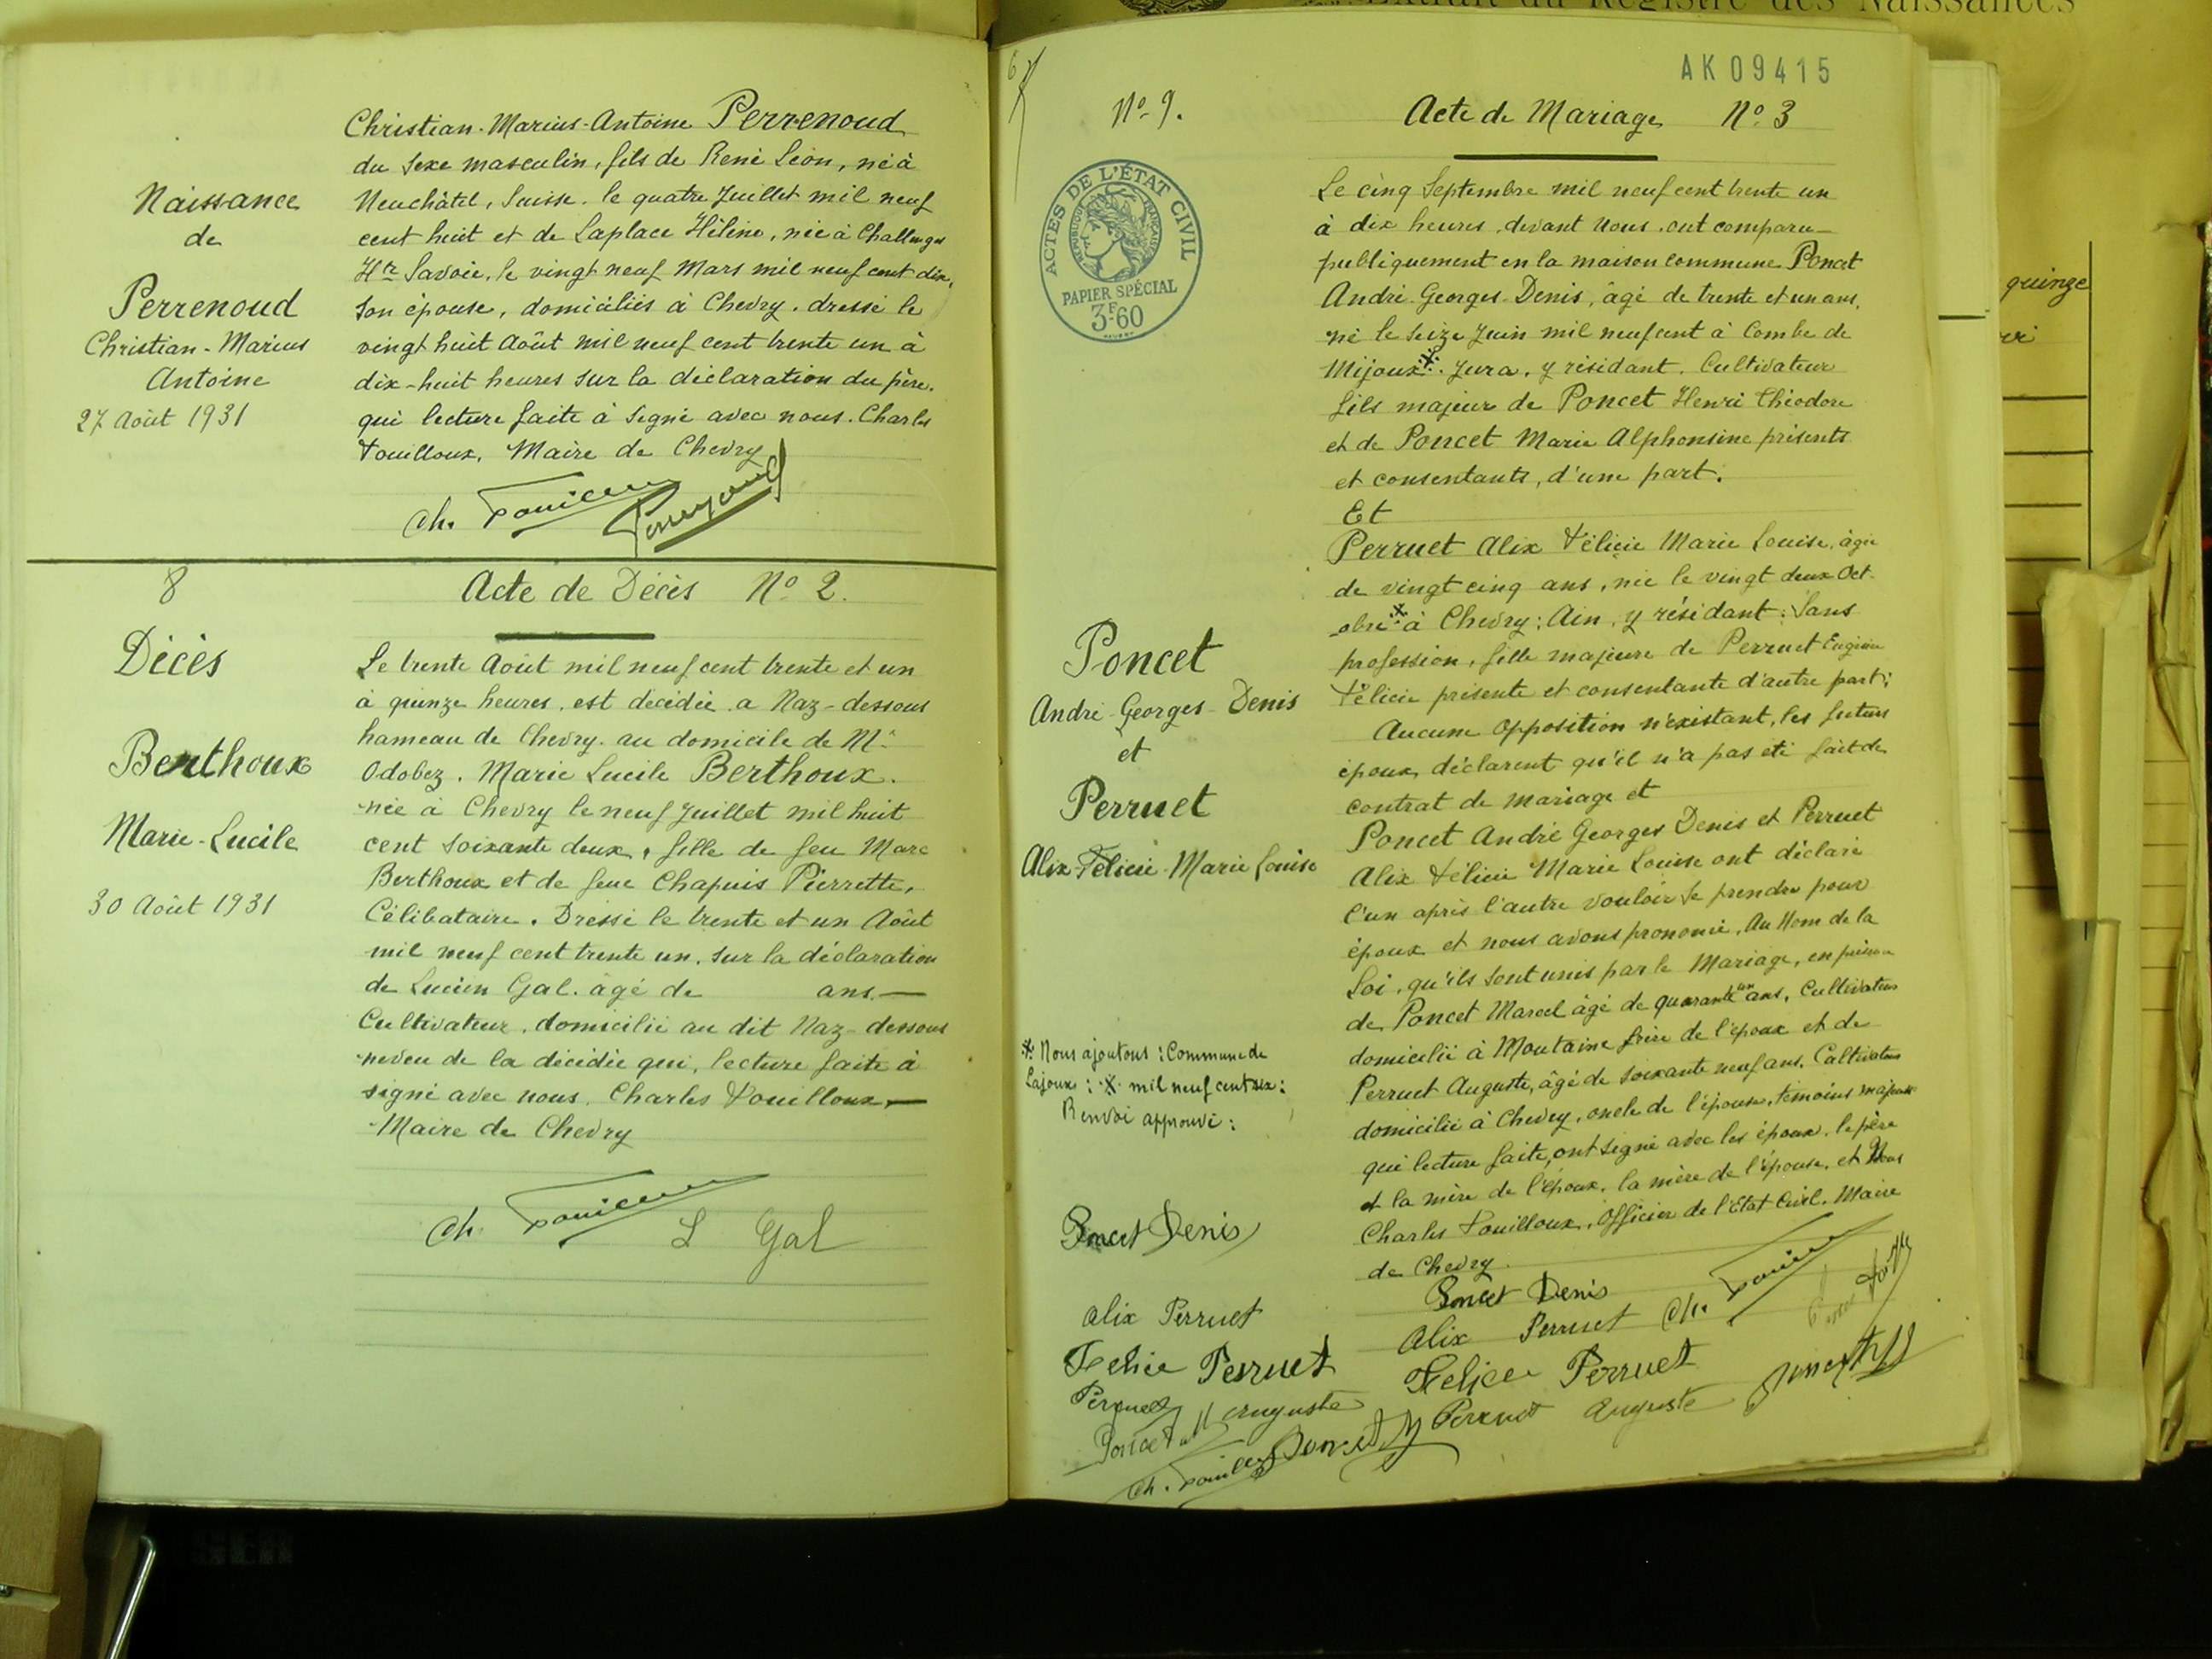 Extrait du Registre des Naissances
Christian-Marius-Antoine Perrenoud
du sexe masculin, fils de René Léon, né à
Neuchâtel, Suisse. le quatre Juillet mil neuf
cent huit et de Laplace Hélène, née à Challonges
Hte Savoie, le vingt neuf Mars mil neuf cent dix,
son épouse, domiciliés à Chevry. dressé le
vingt huit Août mil neuf cent trente un à
dix-huit heures sur la déclaration du père.
qui lecture faite à signé avec nous. Charles
Vouilloux, Maire de Chevry
Naissance
de
Perrenoud
Christian-Marius
Antoine
27 Août 1931
8
Acte de Décès No 2.
Décès
Berthoux
Marie-Lucile
30 Août 1931
Le trente Août mil neuf cent trente et un
à quinze heures, est décédée a Naz-dessous
hameau de Chevry. au domicile de Mr
Odobez. Marie Lucile Berthoux.
née à Chevry le neuf Juillet mil huit
cent soixante deux, fille de feu Marc
Berthoux et de feue Chapuis Pierrette,
Célibataire. Dressé le trente et un Août
mil neuf cent trente un. sur la déclaration
de Lucien Gal. âgé de ans.—
Cultivateur, domicilié au dit Naz-dessous
neveu de la décédée qui, lecture faite à
signé avec nous. Charles Vouilloux,—
Maire de Chevry
L Gal
AK09415
No 9.
Acte de Mariage No 3
ACTES DE L'ÉTAT CIVIL
RÉPUBLIQUE FRANÇAISE
PAPIER SPÉCIAL
3F60
Le cinq Septembre mil neuf cent trente un
à dix heures, devant Nous, ont comparu—
publiquement en la maison commune Poncet
André-Georges-Denis, âgé de trente et un ans,
né le seize Juin mil neuf cent à Combe de
Mijoux※. Jura, y résidant. Cultivateur
fils majeur de Poncet Henri Théodore
et de Poncet Marie Alphonsine présents
et consentants, d'une part.
Et
Perruet Alix Félicie Marie Louise, âgée
de vingt cinq ans, née le vingt deux Oct-
obre※ à Chevry; Ain, y résidant: Sans
profession, fille majeure de Perruet Eugénie
Félicie présente et consentante d'autre part;
Aucune Opposition n'existant, les futurs
époux déclarent qu'il n'a pas été fait de
contrat de mariage et
Poncet André Georges Denis et Perruet
Alix Félicie Marie Louise ont déclaré
l'un après l'autre vouloir se prendre pour
époux et nous avons prononcé, Au Nom de la
Loi, qu'ils sont unis par le Mariage, en présence
de Poncet Marcel âgé de quarante un ans, Cultivateur
domicilié à Moutaine frère de l'époux et de
Perruet Auguste, âgé de soixante neuf ans. Cultivateur
domicilié à Chevry, oncle de l'épouse, témoins majeurs
qui lecture faite, ont signé avec les époux. le père
et la mère de l'époux. la mère de l'épouse. et Nous
Charles Vouilloux, Officier de l'Etat Civil. Maire
de Chevry.
Poncet
André-Georges-Denis
et
Perruet
Alix-Félicie-Marie Louise
※ Nous ajoutons : Commune de
Lajoux : ※ mil neuf cent six :
Renvoi approuvé :
Poncet Denis
Alix Perruet
Felicie Perruet
Perruet Auguste
Poncet Denis
Alix Perruet
Felicie Perruet
Perruet Auguste
quinze